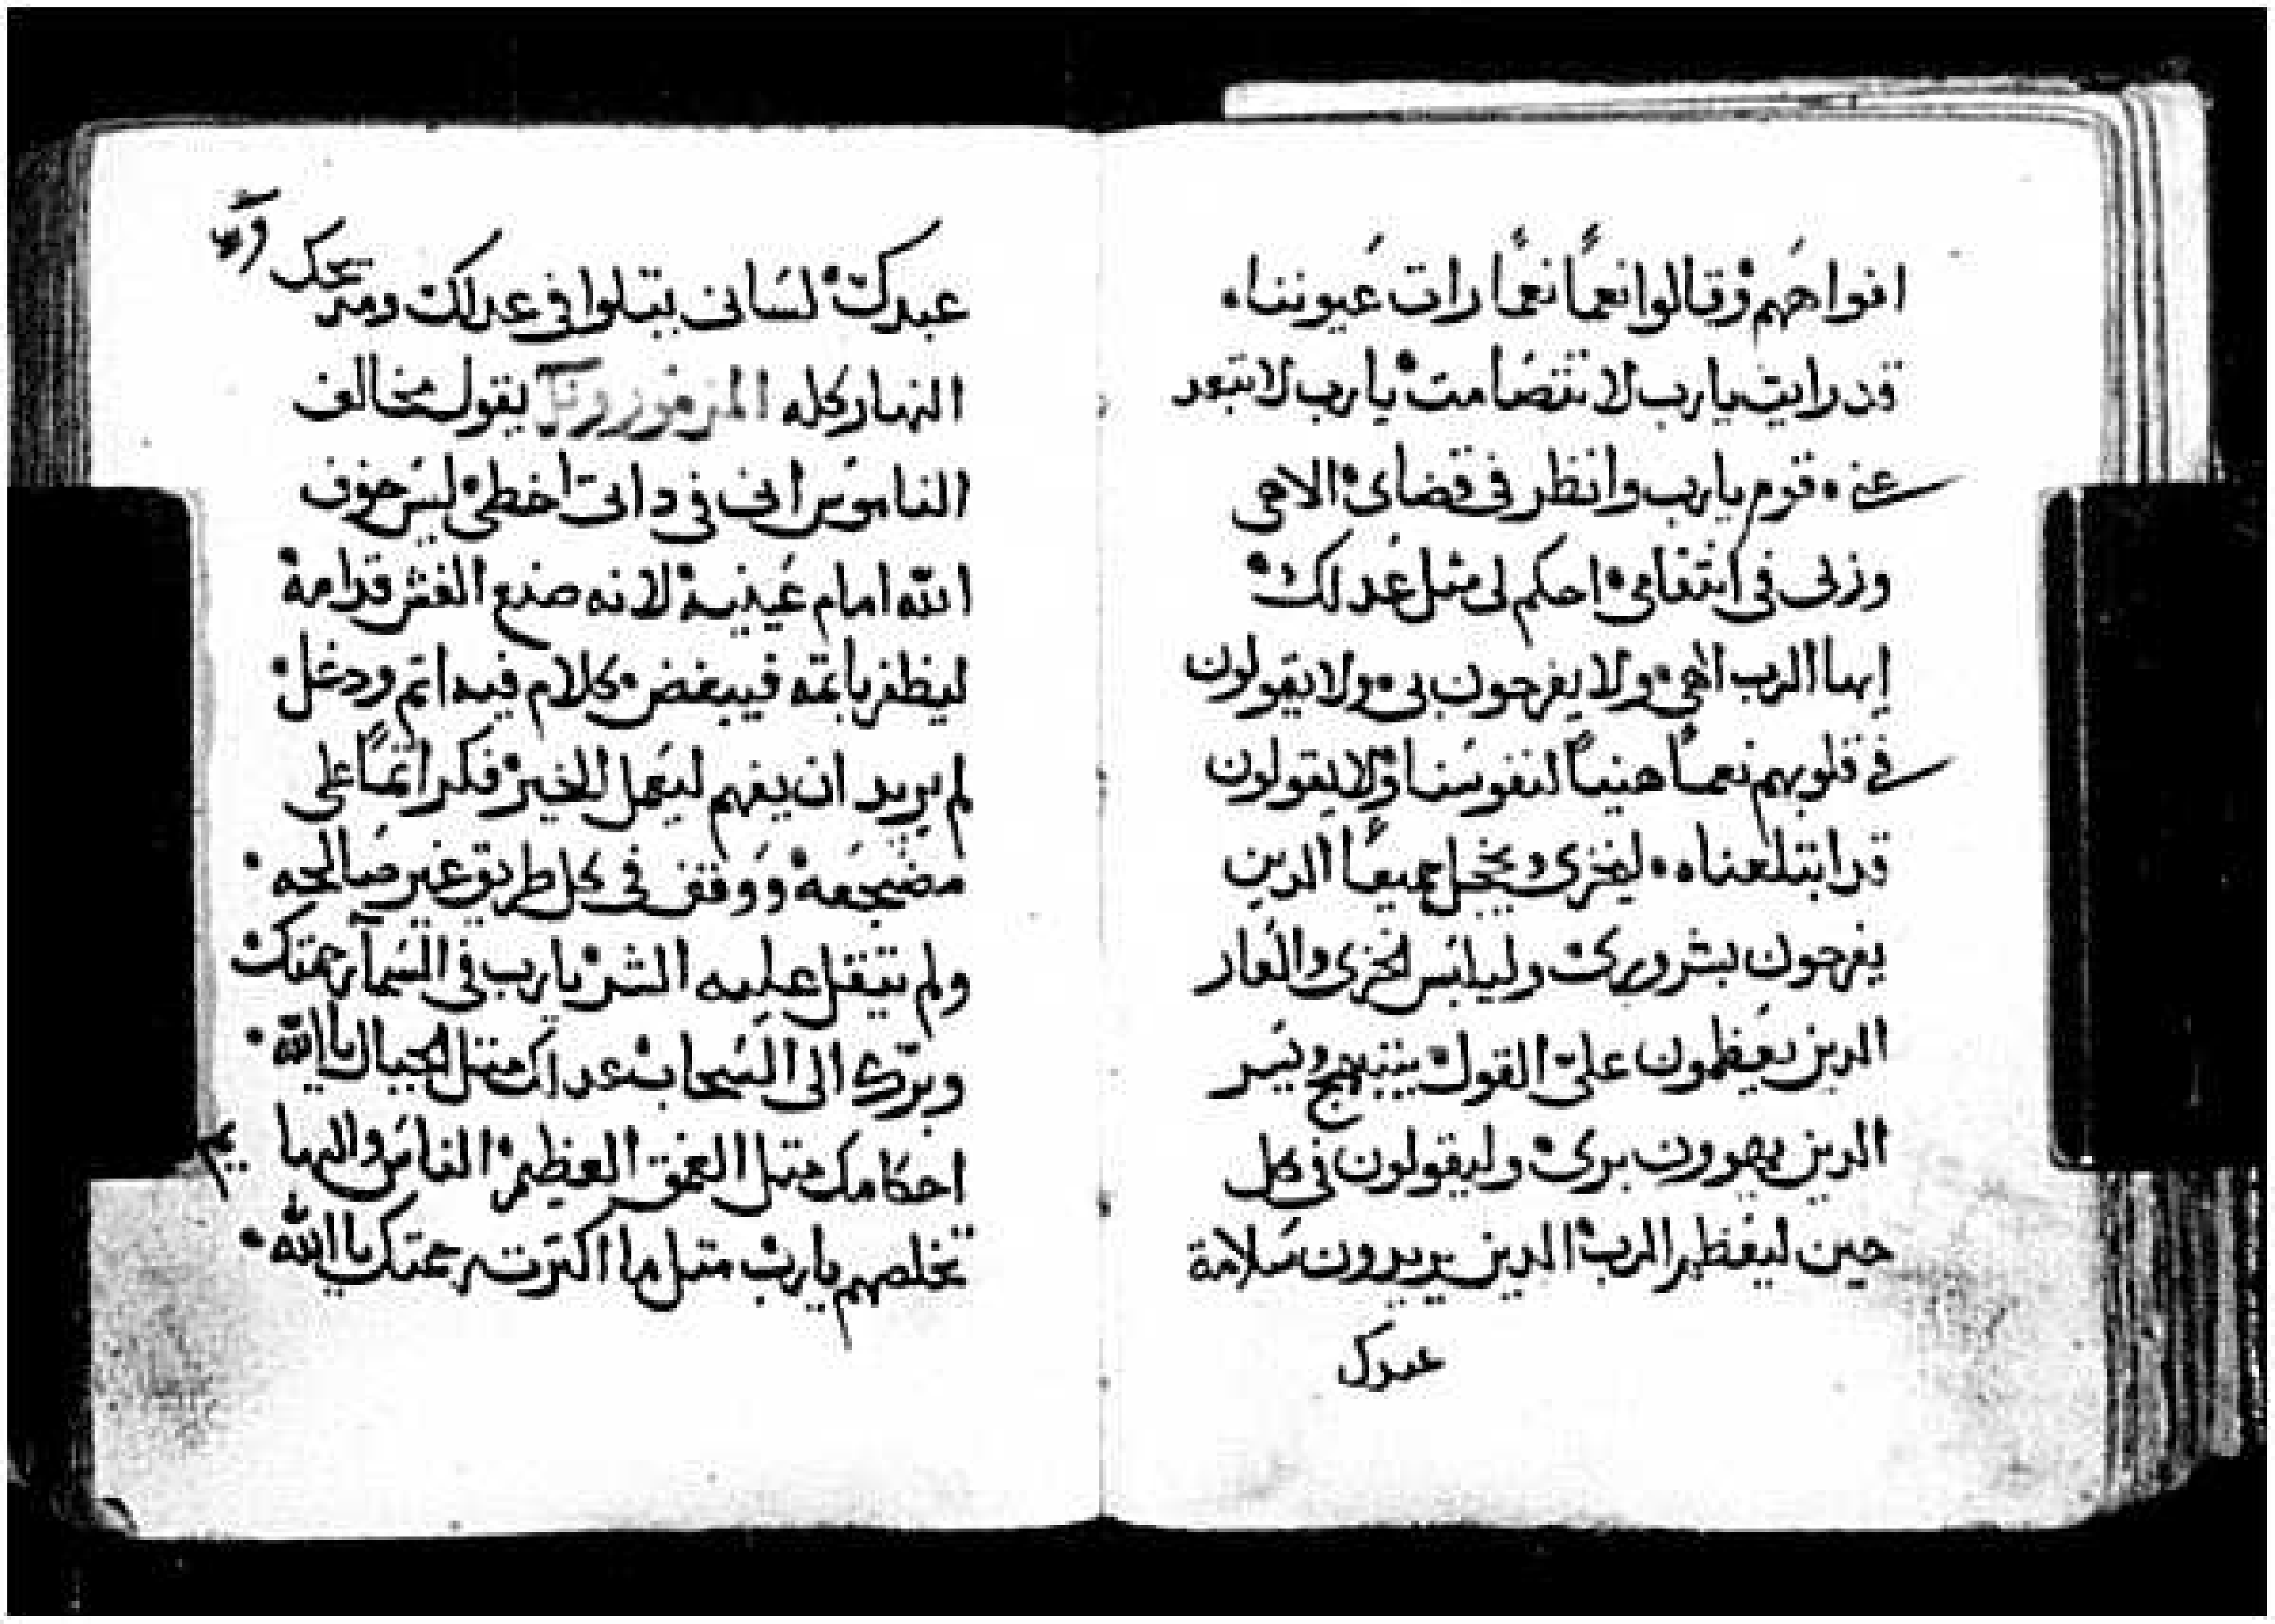 افواههم وقالوا نعمًا نعمًا رات عيوننا.
قد رايت يارب لا تتصامت يارب لا تبعد
عني. قوم يارب وانظر في قضاى الاهى
وزلى في انتقامي احكم لى مثل عدلك
ايها الرب الاهي ولا يفرحون بى ولا يقولون
في قلوبهم نعمًا هنيًا لنفوسنا ولا يقولون
قد ابتلعناه. ليخزى ويخجل جميعًا الدين
يفرحون بشرورى وليلبس الخزى والعار
الدين يعظمون على القول يبتهج ويسر
الدين يهوون برى وليقولون في كل
حين ليعظم الرب الدين يريدون سلامة
عبدك
عبدك لسانى يتلوا في عدلك ومدحتك
النهار كله المزمور يقول مخالف
الناموس انى في داتى اخطى ليس خوف
الله امام عينيه لانه صنع الغش قدامه
ليظفر باتمه فيبغض كلام فيه اتم ودغل
لم يريد ان يفهم ليعمل الخير فكر اتمًا على
مضجعه ووقف في كل طريق غير صالحه
ولم يتقل عليه الشر يارب في السمآ رحمتك
وبرك الى السحاب عدلك متل الجبال يا الله
احكامك متل العمق العظيم الناس والبهايم
تخلصهم يارب متل ما اكترت رحمتك يا الله